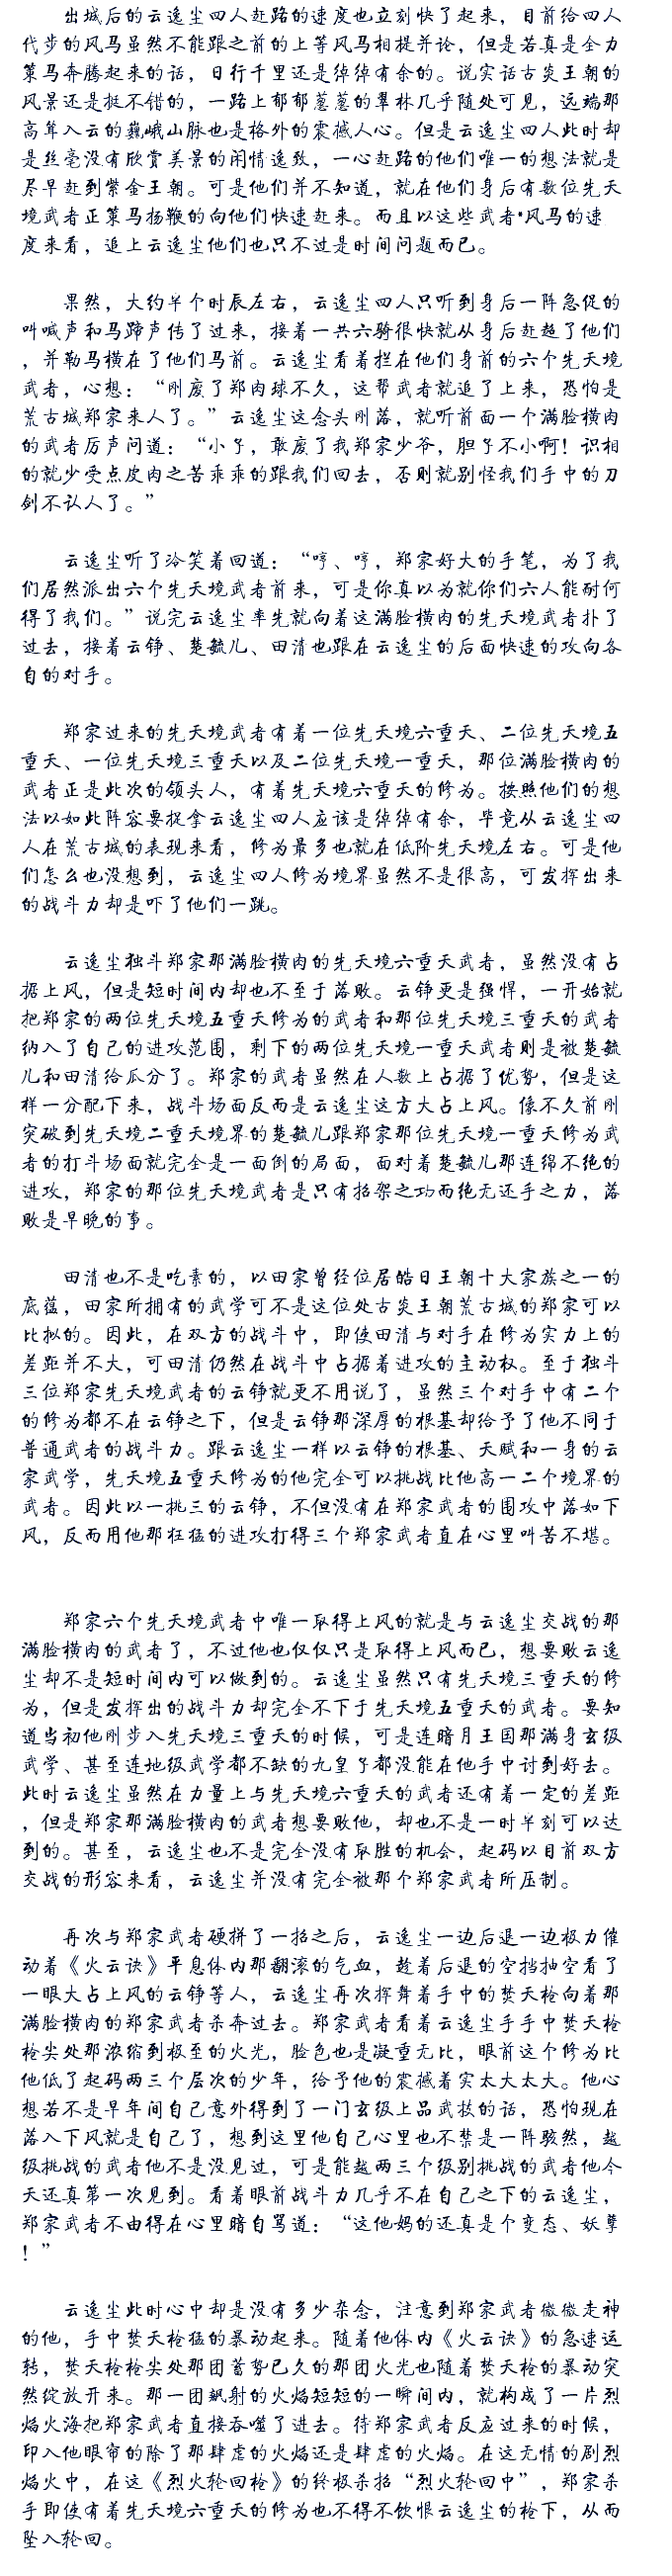 出城后的云逸尘四人赶路的速度也立刻快了起来，目前给四人
代步的风马虽然不能跟之前的上等风马相提并论，但是若真是全力
策马奔腾起来的话，日行千里还是绰绰有余的。说实话古炎王朝的
风景还是挺不错的，一路上郁郁葱葱的翠林几乎随处可见，远端那
高耸入云的巍峨山脉也是格外的震撼人心。但是云逸尘四人此时却
是丝毫没有欣赏美景的闲情逸致，一心赶路的他们唯一的想法就是
尽早赶到紫金王朝。可是他们并不知道，就在他们身后有数位先天
境武者正策马扬鞭的向他们快速赶来。而且以这些武者*风马的速
度来看，追上云逸尘他们也只不过是时间问题而已。
果然，大约半个时辰左右，云逸尘四人只听到身后一阵急促的
叫喊声和马蹄声传了过来，接着一共六骑很快就从身后赶超了他们
，并勒马横在了他们马前。云逸尘看着拦在他们身前的六个先天境
武者，心想：“刚废了郑肉球不久，这帮武者就追了上来，恐怕是
荒古城郑家来人了。”云逸尘这念头刚落，就听前面一个满脸横肉
的武者厉声问道：“小子，敢废了我郑家少爷，胆子不小啊！识相
的就少受点皮肉之苦乖乖的跟我们回去，否则就别怪我们手中的刀
剑不认人了。”
云逸尘听了冷笑着回道：“哼、哼，郑家好大的手笔，为了我
们居然派出六个先天境武者前来，可是你真以为就你们六人能耐何
得了我们。”说完云逸尘率先就向着这满脸横肉的先天境武者扑了
过去，接着云铮、楚毓儿、田清也跟在云逸尘的后面快速的攻向各
自的对手。
郑家过来的先天境武者有着一位先天境六重天、二位先天境五
重天、一位先天境三重天以及二位先天境一重天，那位满脸横肉的
武者正是此次的领头人，有着先天境六重天的修为。按照他们的想
法以如此阵容要捉拿云逸尘四人应该是绰绰有余，毕竟从云逸尘四
人在荒古城的表现来看，修为最多也就在低阶先天境左右。可是他
们怎么也没想到，云逸尘四人修为境界虽然不是很高，可发挥出来
的战斗力却是吓了他们一跳。
云逸尘独斗郑家那满脸横肉的先天境六重天武者，虽然没有占
据上风，但是短时间内却也不至于落败。云铮更是强悍，一开始就
把郑家的两位先天境五重天修为的武者和那位先天境三重天的武者
纳入了自己的进攻范围，剩下的两位先天境一重天武者则是被楚毓
儿和田清给瓜分了。郑家的武者虽然在人数上占据了优势，但是这
样一分配下来，战斗场面反而是云逸尘这方大占上风。像不久前刚
突破到先天境二重天境界的楚毓儿跟郑家那位先天境一重天修为武
者的打斗场面就完全是一面倒的局面，面对着楚毓儿那连绵不绝的
进攻，郑家的那位先天境武者是只有招架之功而绝无还手之力，落
败是早晚的事。
田清也不是吃素的，以田家曾经位居皓日王朝十大家族之一的
底蕴，田家所拥有的武学可不是这位处古炎王朝荒古城的郑家可以
比拟的。因此，在双方的战斗中，即使田清与对手在修为实力上的
差距并不大，可田清仍然在战斗中占据着进攻的主动权。至于独斗
三位郑家先天境武者的云铮就更不用说了，虽然三个对手中有二个
的修为都不在云铮之下，但是云铮那深厚的根基却给予了他不同于
普通武者的战斗力。跟云逸尘一样以云铮的根基、天赋和一身的云
家武学，先天境五重天修为的他完全可以挑战比他高一二个境界的
武者。因此以一挑三的云铮，不但没有在郑家武者的围攻中落如下
风，反而用他那狂猛的进攻打得三个郑家武者直在心里叫苦不堪。
郑家六个先天境武者中唯一取得上风的就是与云逸尘交战的那
满脸横肉的武者了，不过他也仅仅只是取得上风而已，想要败云逸
尘却不是短时间内可以做到的。云逸尘虽然只有先天境三重天的修
为，但是发挥出的战斗力却完全不下于先天境五重天的武者。要知
道当初他刚步入先天境三重天的时候，可是连暗月王国那满身玄级
武学、甚至连地级武学都不缺的九皇子都没能在他手中讨到好去。
此时云逸尘虽然在力量上与先天境六重天的武者还有着一定的差距
，但是郑家那满脸横肉的武者想要败他，却也不是一时半刻可以达
到的。甚至，云逸尘也不是完全没有取胜的机会，起码以目前双方
交战的形容来看，云逸尘并没有完全被那个郑家武者所压制。
再次与郑家武者硬拼了一招之后，云逸尘一边后退一边极力催
动着《火云诀》平息体内那翻滚的气血，趁着后退的空挡抽空看了
一眼大占上风的云铮等人，云逸尘再次挥舞着手中的焚天枪向着那
满脸横肉的郑家武者杀奔过去。郑家武者看着云逸尘手手中焚天枪
枪尖处那浓缩到极至的火光，脸色也是凝重无比，眼前这个修为比
他低了起码两三个层次的少年，给予他的震撼着实太大太大。他心
想若不是早年间自己意外得到了一门玄级上品武技的话，恐怕现在
落入下风就是自己了，想到这里他自己心里也不禁是一阵骇然，越
级挑战的武者他不是没见过，可是能越两三个级别挑战的武者他今
天还真第一次见到。看着眼前战斗力几乎不在自己之下的云逸尘，
郑家武者不由得在心里暗自骂道：“这他妈的还真是个变态、妖孽
！”
云逸尘此时心中却是没有多少杂念，注意到郑家武者微微走神
的他，手中焚天枪猛的暴动起来。随着他体内《火云诀》的急速运
转，焚天枪枪尖处那团蓄势已久的那团火光也随着焚天枪的暴动突
然绽放开来。那一团飙射的火焰短短的一瞬间内，就构成了一片烈
焰火海把郑家武者直接吞噬了进去。待郑家武者反应过来的时候，
印入他眼帘的除了那肆虐的火焰还是肆虐的火焰。在这无情的剧烈
焰火中，在这《烈火轮回枪》的终极杀招“烈火轮回中”，郑家杀
手即使有着先天境六重天的修为也不得不饮恨云逸尘的枪下，从而
坠入轮回。